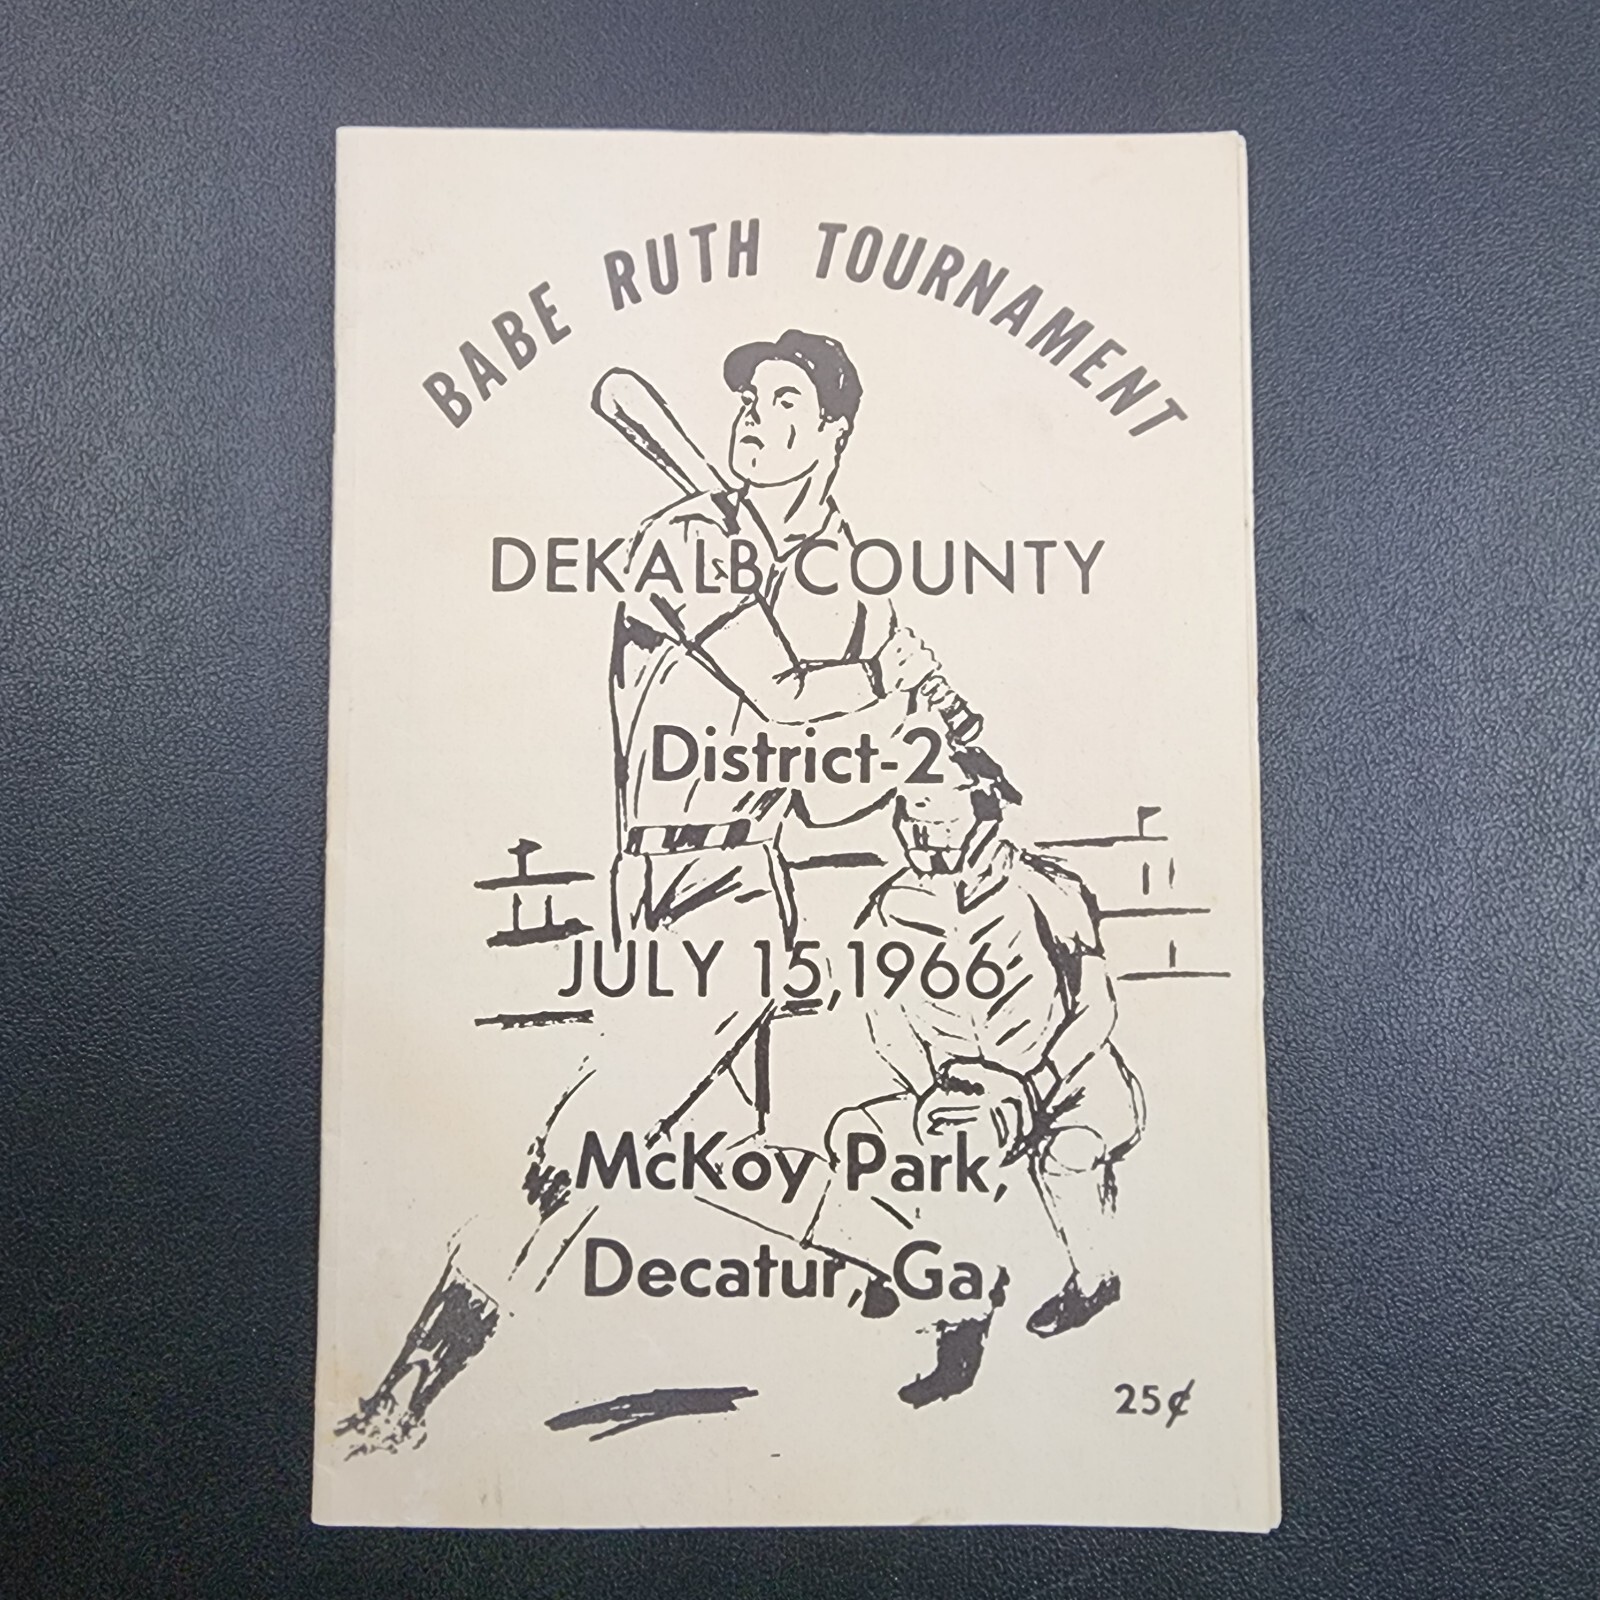 BABE RUTH TOURNAMENT
DEKALB COUNTY
District-2
JULY 15,1966
McKoy Park,
Decatur, Ga.
25¢